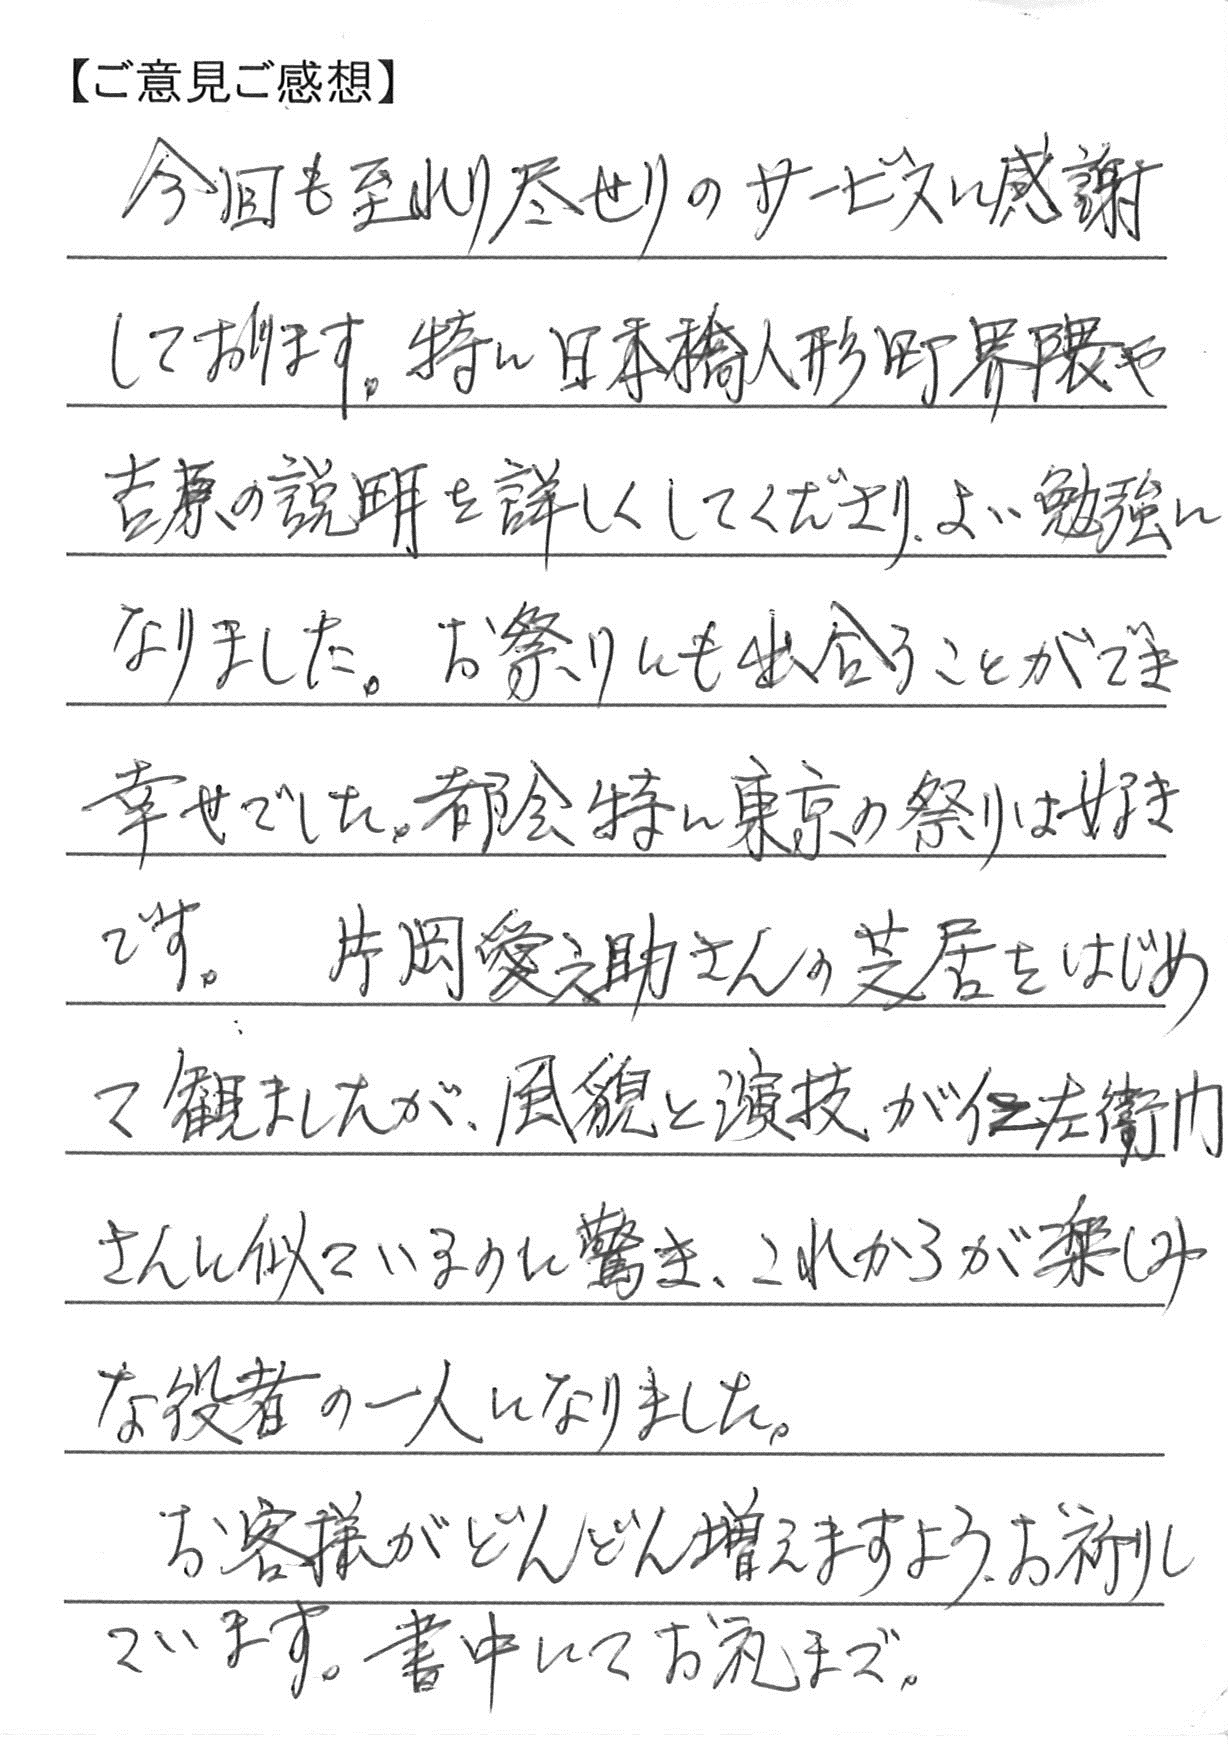 【ご意見ご感想】
今回も至れり尽せりのサービスに感謝
しております。特に日本橋人形町界隈や
吉原の説明を詳しくしてくださり、よい勉強に
なりました。お祭りにも出合うことができ
幸せでした。都会特に東京の祭りは好き
です。 片岡愛之助さんの芝居をはじめ
て観ましたが、風貌と演技が仁左衛門
さんに似ているのに驚き、これからが楽しみ
な役者の一人になりました。
お客様がどんどん増えますよう、お祈りし
ています。書中にてお礼まで。